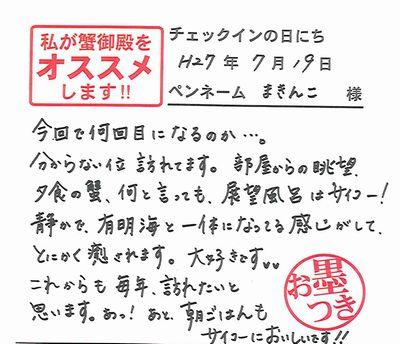 私が蟹御殿を
オススメ
します!!
チェックインの日にち
H27年 7月19日
ペンネーム まきんこ 様
今回で何回目になるのか…。
分からない位 訪れてます。部屋からの眺望、
夕食の蟹、何と言っても、展望風呂はサイコー!
静かで、有明海と一体になってる感じがして、
とにかく癒されます。大好きです。
これからも毎年、訪れたいと
思います。あっ!あと、朝ごはんも
サイコーにおいしいです!!
お墨つき